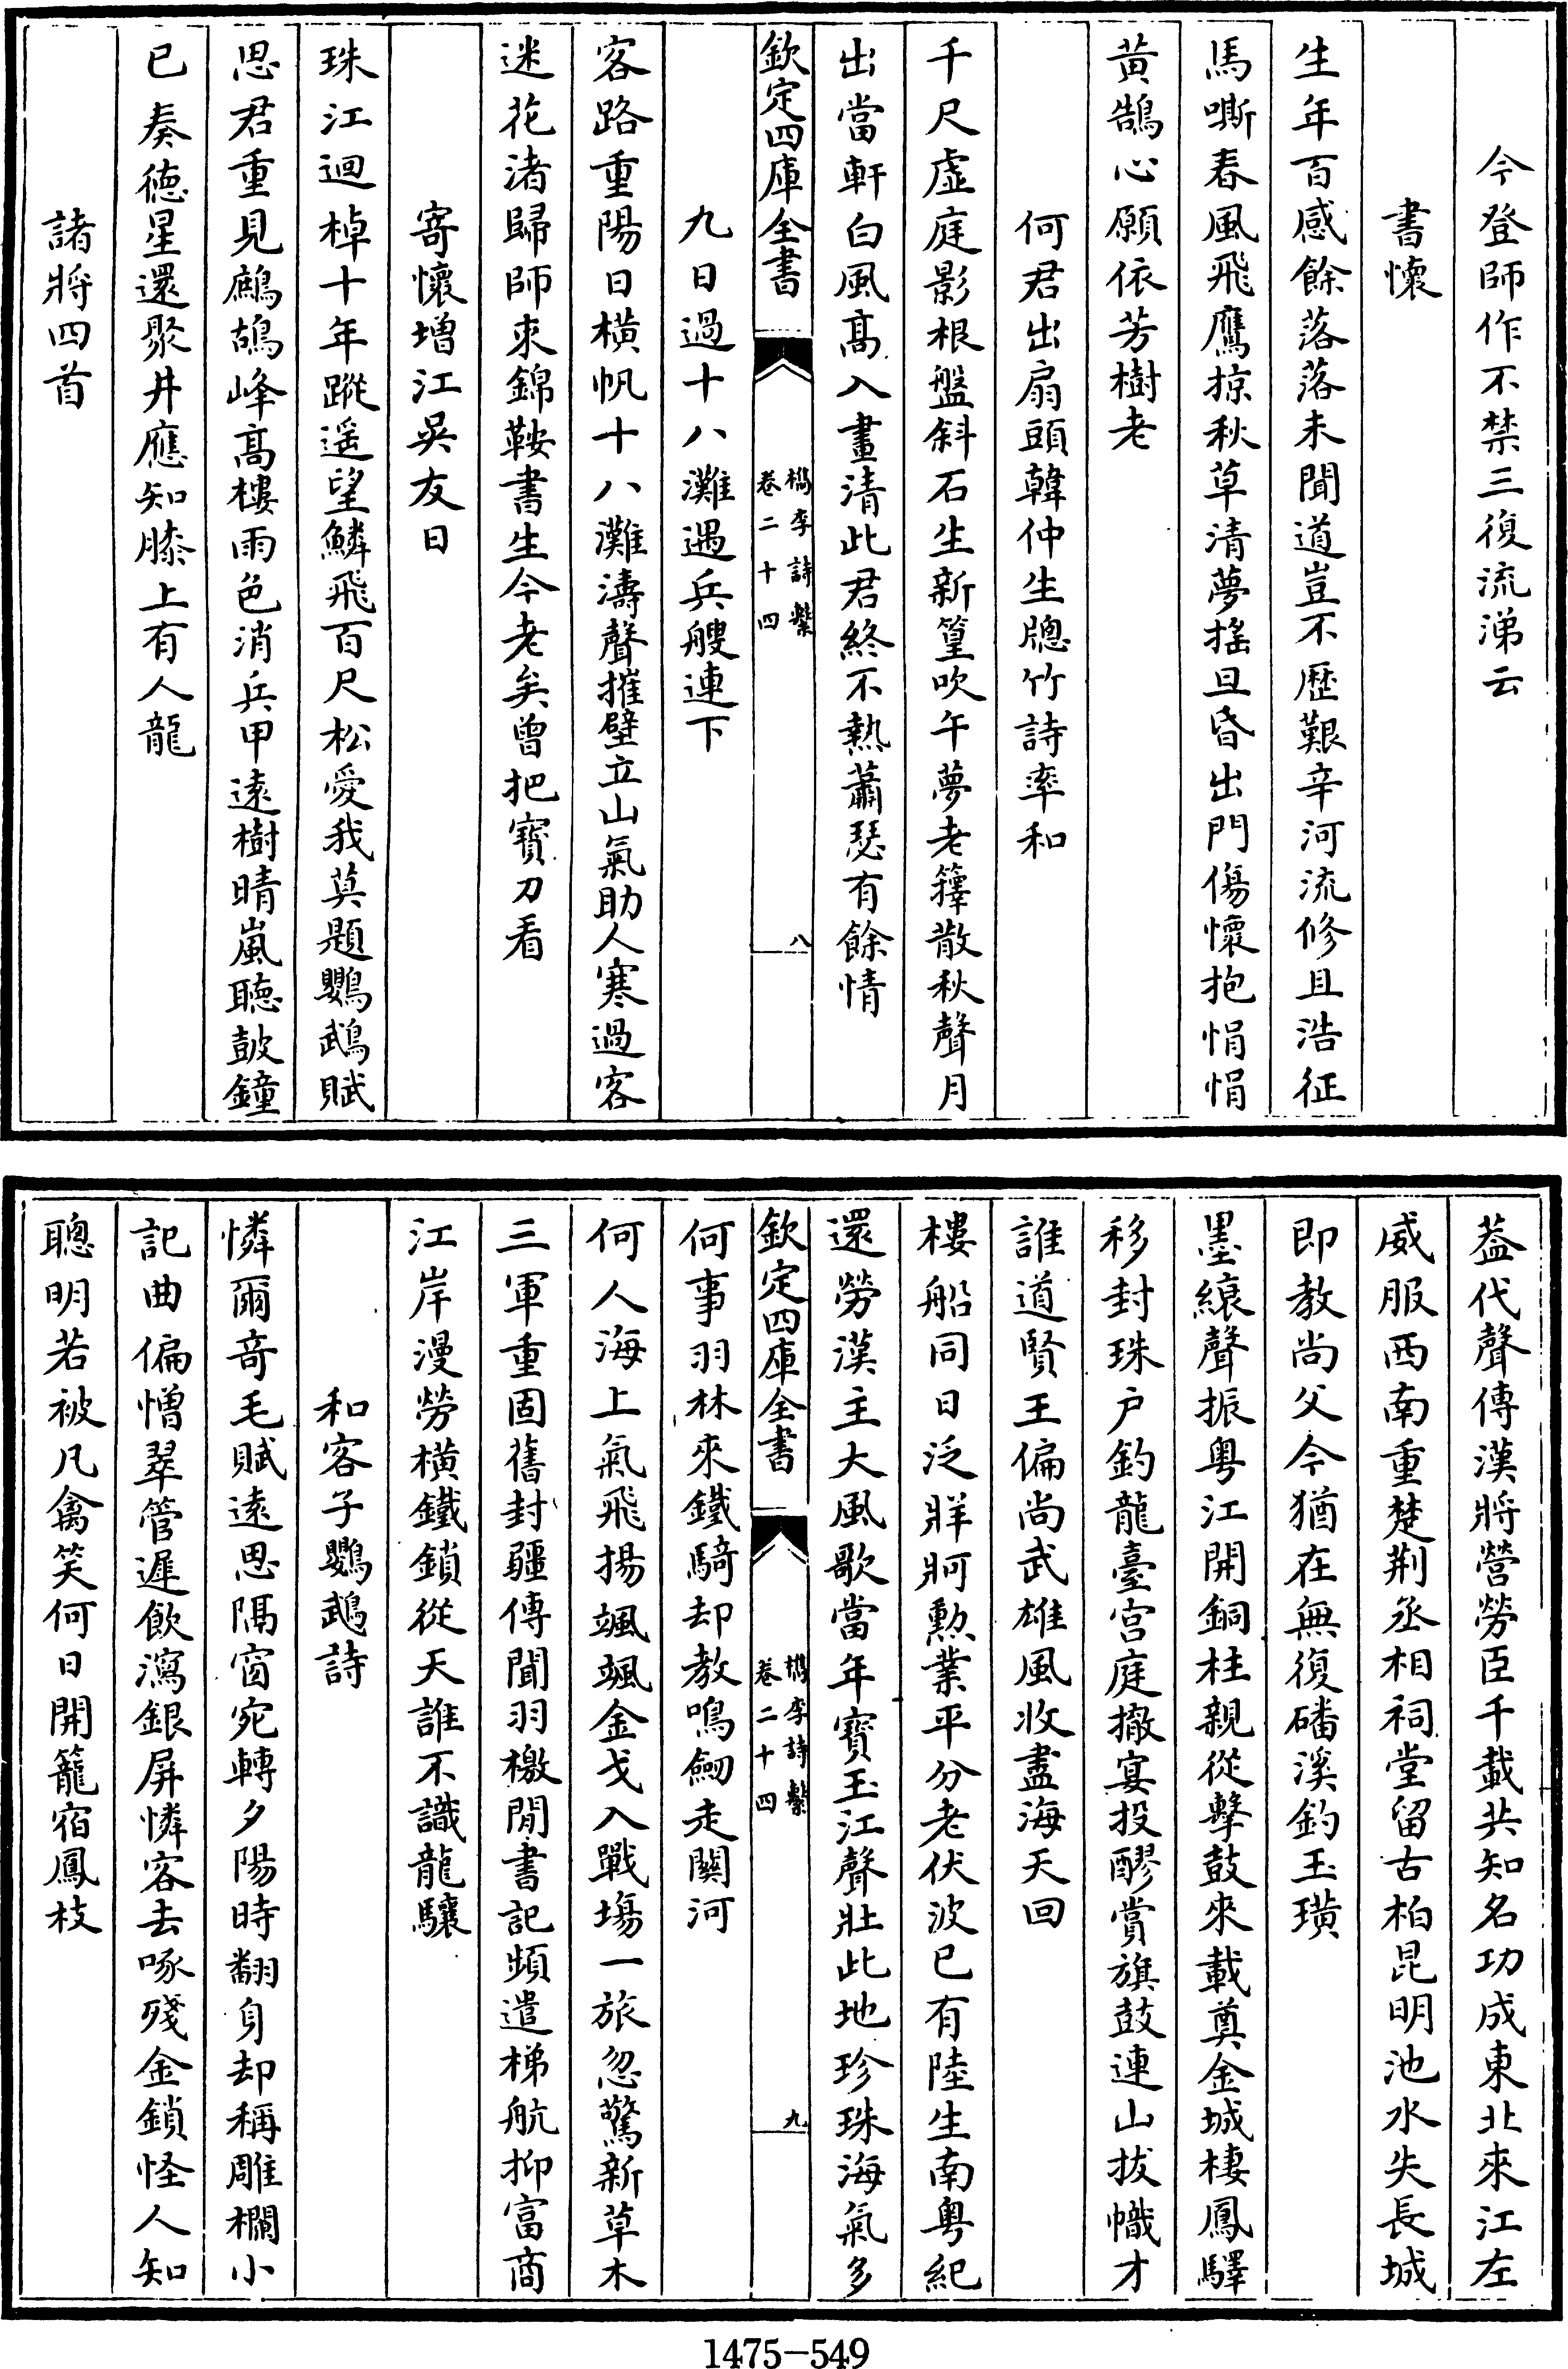 今登師作不禁三復流涕云
書懷
生年百感餘落落未聞道豈不歷艱辛河流修且浩征
馬嘶春風飛鷹掠秋草清夢搖旦昏出門傷懷抱悁悁
黃鵠心願依芳樹老
何君出扇頭韓仲生牕竹詩率和
千尺虛庭影根盤斜石生新篁吹午夢老籜散秋聲月
出當軒白風高入畫清此君終不熱蕭瑟有餘情
欽定四庫全書
檇李詩繫
卷二十四
八
九日過十八灘遇兵艘連下
客路重陽日橫帆十八灘濤聲摧壁立山氣助人寒過客
迷花渚歸師來錦鞍書生今老矣曾把寶刀看
寄懷增江吳友日
珠江迴棹十年蹤遥望鱗飛百尺松愛我莫題鸚鵡賦
思君重見鷓鴣峰高樓雨色消兵甲遠樹晴嵐聽鼓鐘
已奏德星還聚井應知膝上有人龍
諸將四首
蓋代聲傳漢將營勞臣千載共知名功成東北來江左
威服西南重楚荆丞相祠堂留古柏昆明池水失長城
即教尚父今猶在無復磻溪釣玉璜
墨縗聲振粤江開銅柱親從擊鼓來載奠金城棲鳳驛
移封珠户釣龍臺宫庭撤宴投醪賞旗鼓連山拔幟才
誰道賢王偏尚武雄風收盡海天回
樓船同日泛牂牁勲業平分老伏波已有陸生南粤紀
還勞漢主大風歌當年寶玉江聲壯此地珍珠海氣多
欽定四庫全書
檇李詩繫
卷二十四
九
何事羽林來鐵騎却教鳴劒走關河
何人海上氣飛揚颯颯金戈入戰場一旅忽驚新草木
三軍重固舊封疆傳聞羽檄閒書記頻遣梯航抑富商
江岸漫勞橫鐵鎖從天誰不識龍驤
和客子鸚鵡詩
憐爾竒毛賦遠思隔窗宛轉夕陽時翻身却稱雕欄小
記曲偏憎翠管遲飲瀉銀屏憐客去啄殘金鎖怪人知
聰明若被凡禽笑何日開籠宿鳳枝
1475-549